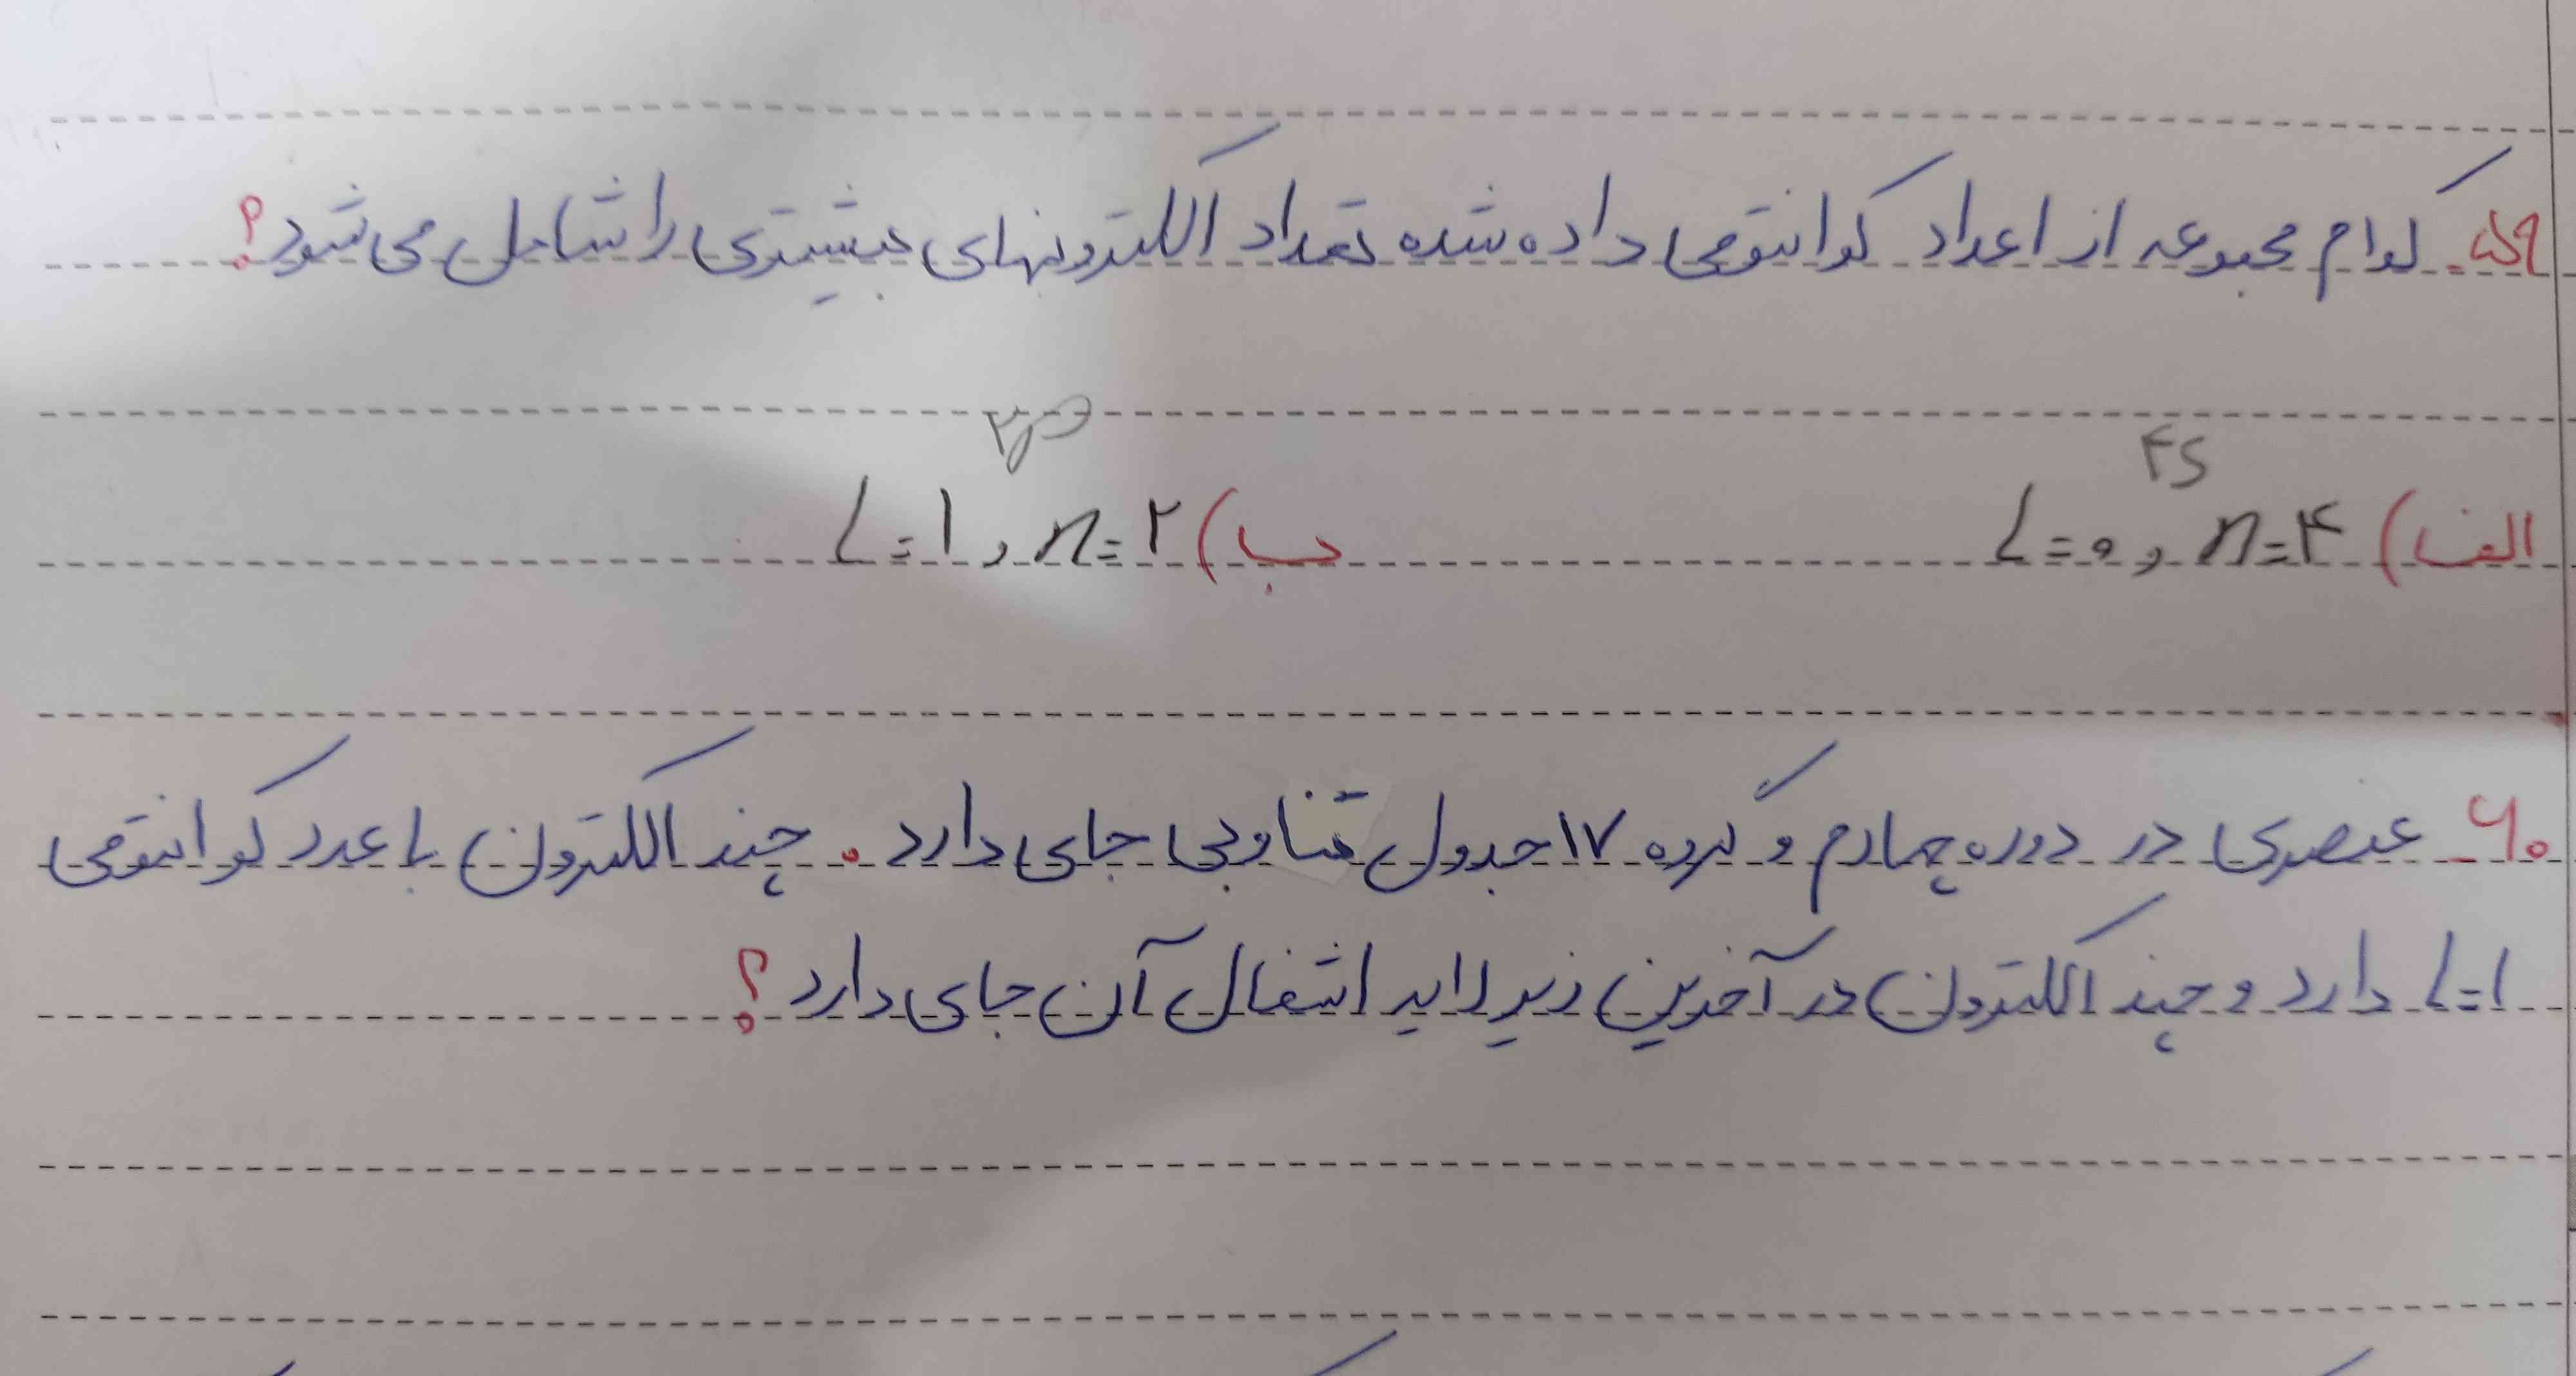 ۵۹. کدام مجموعه از اعداد کوانتومی داده شده تعداد الکترونهای بیشتری را شامل می شود؟
۴s ۲p
الف) n=۴ و L=۰ ب) n=۲ و L=۱
۶۰_ عنصری در دوره چهارم و گروه ۱۷ جدول تناوبی جای دارد. چند الکترون با عدد کوانتومی
L=۱ دارد و چند الکترون در آخرین زیرلایه اشغال آن جای دارد؟